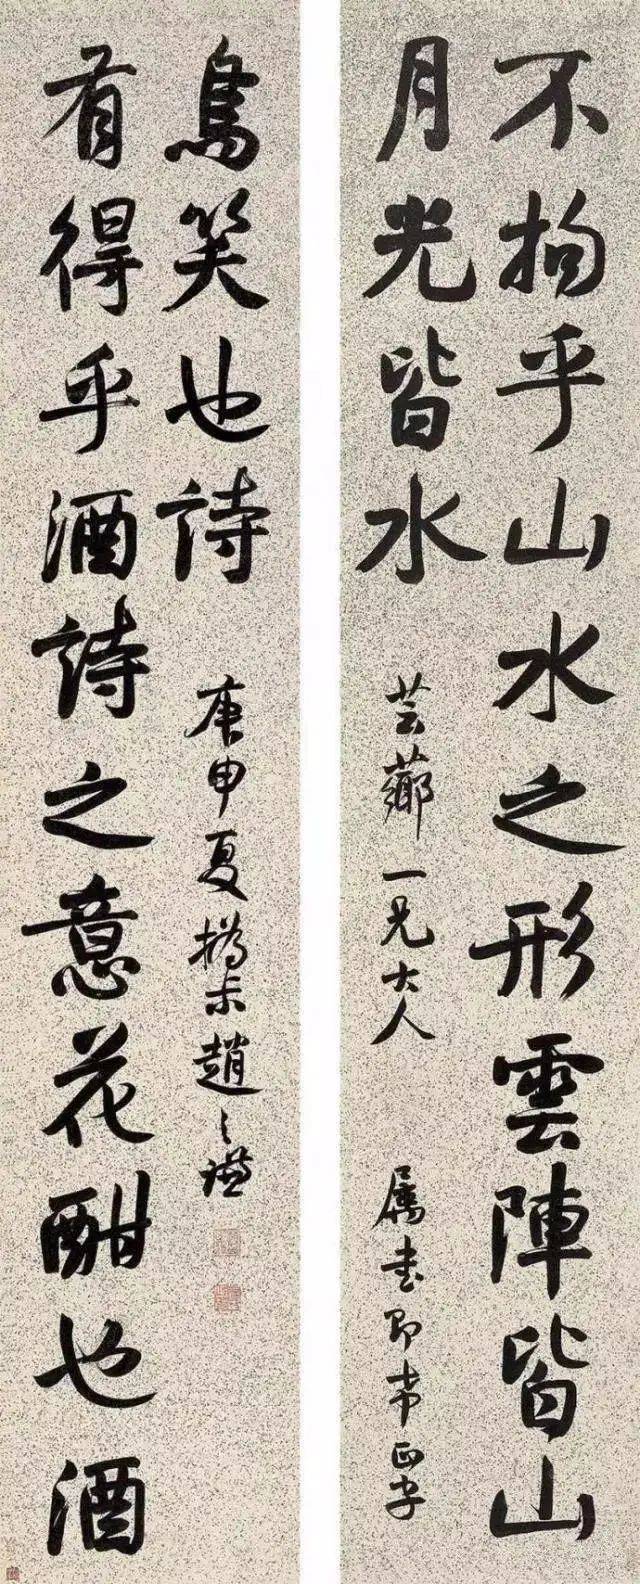 不拘乎山水之形雲陣皆山
月光皆水
芸薌一兄大人 屬書即希正字
有得乎酒詩之意花酣也酒
鳥笑也詩
庚申夏撝尗趙之謙